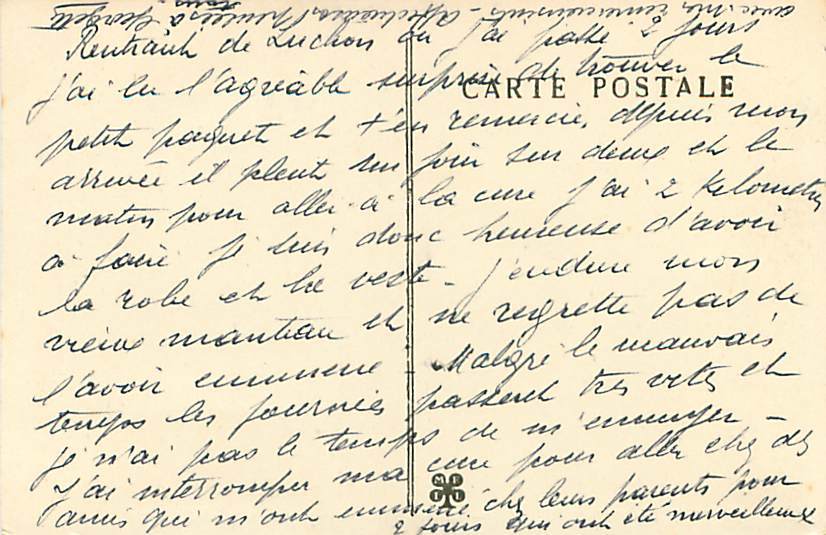 avec mes remerciements - Affectueuses pensées à
tous Georgette
Rentrant de Luchon ou j'ai passé 2 jours
j'ai eu l'agréable surprise de trouver le
CARTE POSTALE
petit paquet et t'en remercie, depuis mon
arrivée il pleut un jour sur deux et le
matin pour aller à la cure j'ai 2 Kilometres
à faire je suis donc heureuse d'avoir
la robe et la veste - j'endure mon
vieux manteau et ne regrette pas de
l'avoir emmené - Malgré le mauvais
temps les journées passent très vites et
je n'ai pas le temps de m'ennuyer -
J'ai interrompu ma cure pour aller chez des
amis qui m'ont emmené chez leurs parents pour
2 jours qui ont été merveilleux
M F
I L